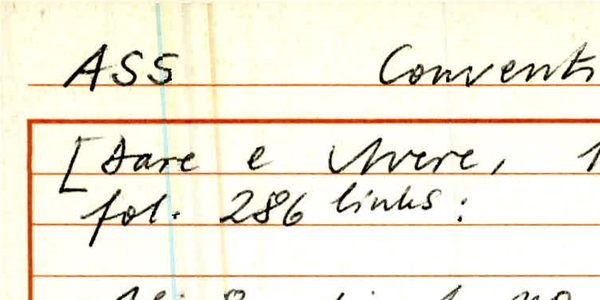 ASS Conventi
[Dare e Avere, 1
fol. 286 links: